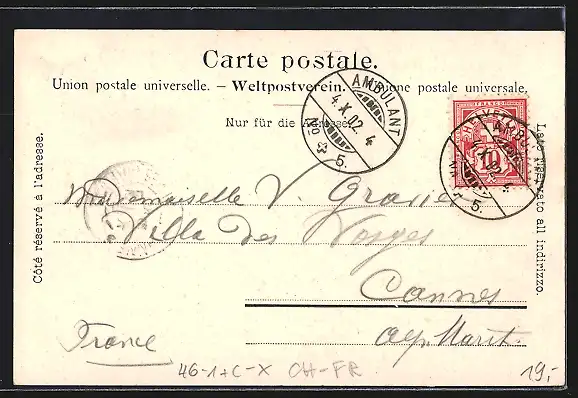 Carte postale.
Union postale universelle. — Weltpostverein. — Unione postale universale.
Nur für die Adresse.
Côté réservé à l'adresse.
Lato riservato all indirizzo.
AMBULANT
4.X.02. 4
No 5.
HELVETIA
FRANCO
10
AMBULANT
X.02. 4
5.
Mademoiselle V. Gravier
Villa des Vosges
Cannes
Alp. Marit.
France
46-1+C-X CH-FR
19,-